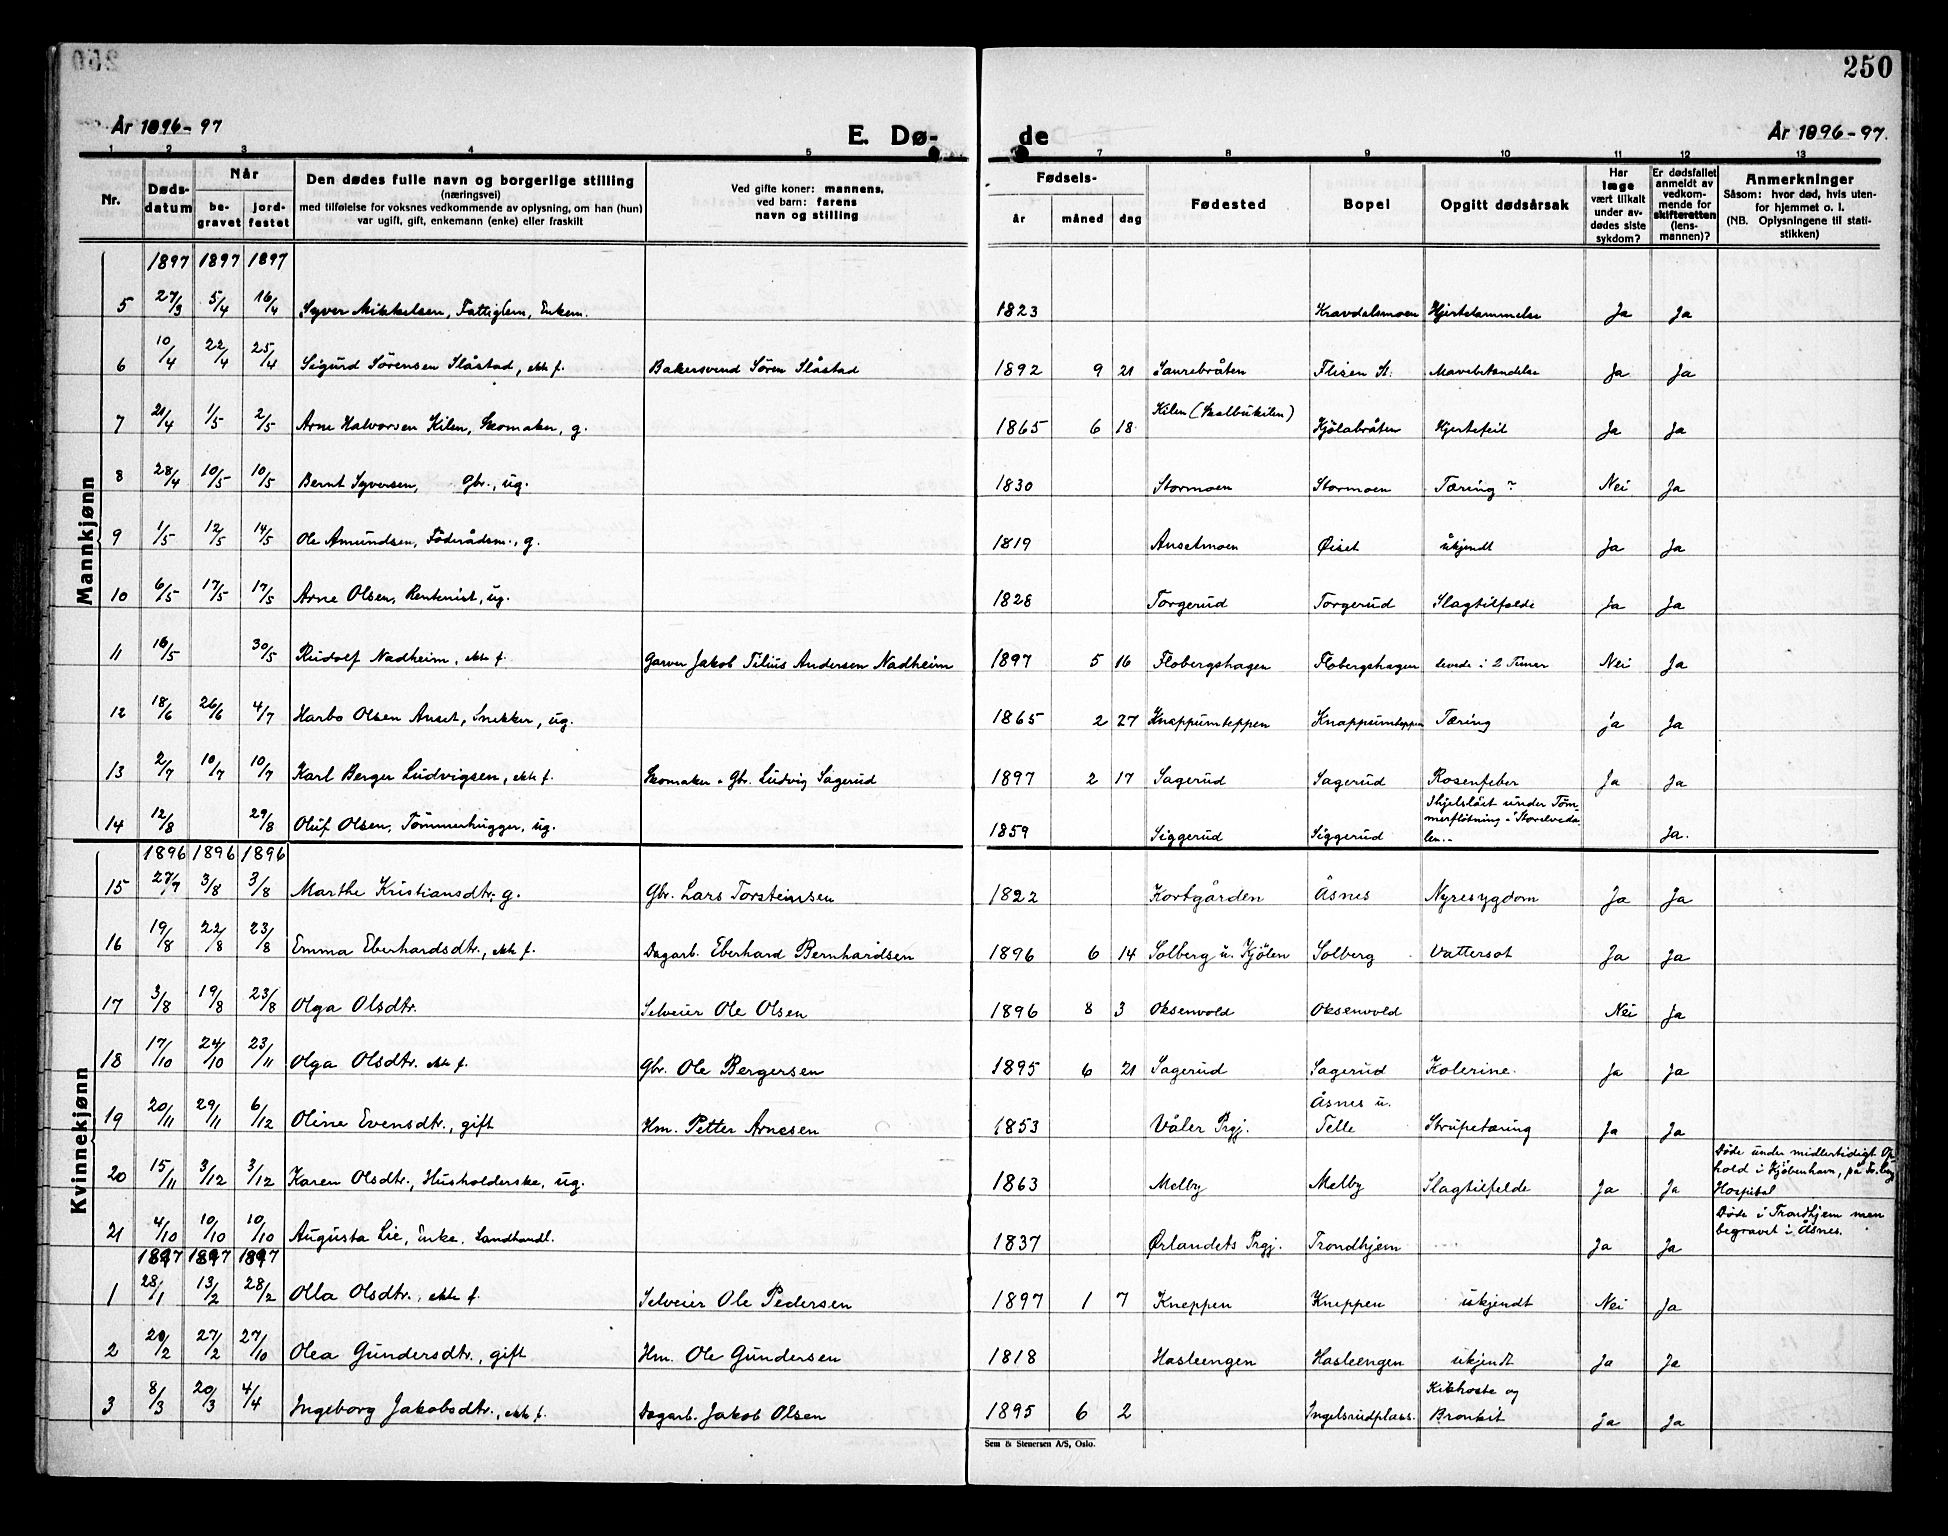 250
År 1896-97
E. Dø-
de
År 1896-97.
1 2 3 4 5 7 8 9 10 11 12 13
Nr.
Døds-
datum
Når
be-
gravet
jord-
festet
Den dødes fulle navn og borgerlige stilling
(næringsvei)
med tilføielse for voksnes vedkommende av oplysning, om han (hun)
var ugift, gift, enkemann (enke) eller fraskilt
Ved gifte koner: mannens,
ved barn: farens
navn og stilling
Fødsels-
år måned dag
Fødested
Bopel
Opgitt dødsårsak
Har
læge
vært tilkalt
under av-
dødes siste
sykdom?
Er dødsfallet
anmeldt av
vedkom-
mende for
skifteretten
(lens-
mannen)?
Anmerkninger
Såsom: hvor død, hvis uten-
for hjemmet o. l.
(NB. Oplysningene til stati-
stikken)
Mannkjønn
1897 1897 1897
5 27/3 5/4 16/4 Syver Mikkelsen, Fattiglem, Enkem. 1823 Kravdalsmoen Hjertelammelse Ja Ja
6 10/4 22/4 25/4 Sigurd Sörensen Slåstad, ekte f. Bakersvend Sören Slåstad 1892 9 21 Saurebråten Flisen St. Mavebetendelse Ja Ja
7 21/4 1/5 2/5 Arne Halvorsen Kilen, Skomaker, g. 1865 6 18 Kilen (Skalbukilen) Kjölabråten Hjertefeil Ja Ja
8 28/4 10/5 10/5 Bernt Syversen, Gbr., ug. 1830 Stormoen Stormoen Tæring ? Nei Ja
9 1/5 12/5 14/5 Ole Amundsen, Föderådsm., g. 1819 Anselmoen Øiset ukjendt Ja Ja
10 6/5 17/5 17/5 Arne Olsen, Rentenist, ug. 1828 Torgerud Torgerud Slagtilfelde Ja Ja
11 16/5 30/5 Rudolf Nadheim, ekte f. Garver Jakob Tilius Andersen Nadheim 1897 5 16 Flobergshagen Flobergshagen levede i 2 Timer Nei Ja
12 18/6 26/6 4/7 Harbo Olsen Anset, Snekker, ug. 1865 2 27 Knappumteppen Knappumteppen Tæring ja Ja
13 2/7 10/7 10/7 Karl Berger Ludvigsen, ekte f. Skomaker - Gbr. Ludvig Sagerud 1897 2 17 Sagerud Sagerud Rosenfeber Ja Ja
14 12/8 29/8 Oluf Olsen, Tömmerhugger, ug. 1859 Siggerud Siggerud Ihjelslået under Töm-
merflötning i Storelveda-
len.- Ja.
Kvinnekjønn
1896 1896 1896
15 27/7 3/8 3/8 Marthe Kristiansdtr, g. Gbr. Lars Torsteinsen 1822 Kortgården Åsnes Nyresygdom Ja Ja
16 19/8 22/8 23/8 Emma Eberhardsdtr., ekte f. Dagarb. Eberhard Bernhardsen 1896 6 14 Solberg u. Kjölen Solberg Vattersot Ja Ja
17 3/8 19/8 23/8 Olga Olsdtr. Selveier Ole Olsen 1896 8 3 Oksenvold Oksenvold Nei Ja
18 17/10 24/10 23/11 Olga Olsdtr. ekte f. Gbr. Ole Bergersen 1895 6 21 Sagerud Sagerud Kolerine. Ja Ja
19 20/11 29/11 6/12 Oline Evensdtr., gift Hm. Petter Arnesen 1853 Våler Prgj. Åsnes u.
Telle Strupetæring Ja Ja
20 15/11 3/12 3/12 Karen Olsdtr., Husholderske, ug. 1863 Melby Melby Slagtilfelde Ja Ja Döde under midlertidigt Op-
hold i Kjöbenhavn, på
Hospital
21 4/10 10/10 10/10 Augusta Lie, Enke, Landhandl. 1837 Ørlandets Prgj. Trondhjem Ja Ja Døde i Trondhjem men
begravet i Åsnes.
1897 1897 1897
1 28/1 13/2 28/2 Olla Olsdtr., ekte f. Selveier Ole Pedersen 1897 1 7 Kneppen Kneppen ukjendt Nei Ja
2 20/2 27/2 27/10 Olea Gundersdtr., gift Hm. Ole Gundersen 1818 Hasleengen Hasleengen ukjendt Ja Ja
3 8/3 20/3 4/4 Ingeborg Jakobsdtr., ekte f. Dagarb. Jakob Olsen 1895 6 2 Ingelsrudplass. Kikhoste og
Bronkit Ja Ja
Sem & Stenersen A/S, Oslo.